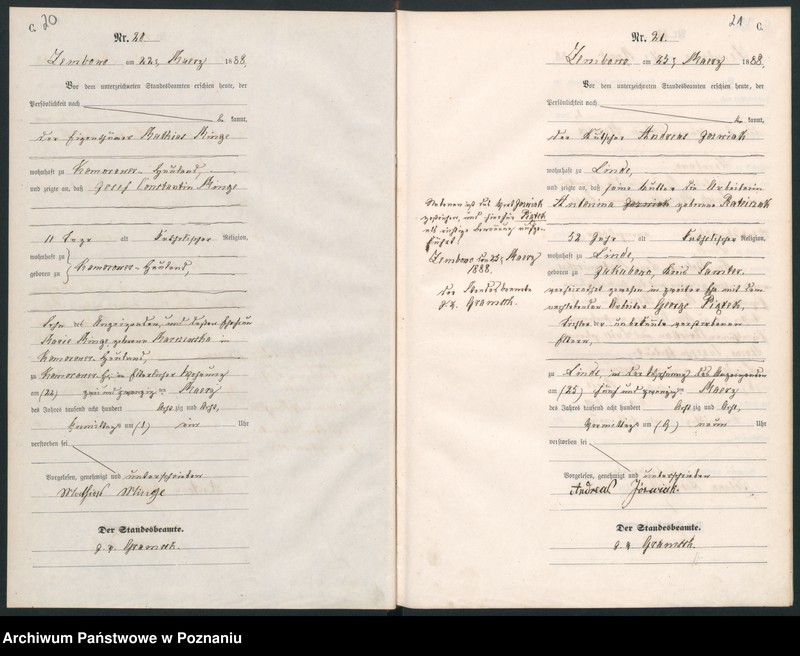 C. 20
Nr. 20
Zembowo am 22, Maerz 1888.
Vor dem unterzeichneten Standesbeamten erschien heute, der
Persönlichkeit nach
be kannt,
der Eigenthümer Mathias Minge
wohnhaft zu Komorowo-Hauland,
und zeigte an, daß Josef Constantin Minge
11 Tage alt katholischer Religion,
wohnhaft zu
Komorowo-Hauland,
geboren zu
Sohn des Anzeigenden, und dessen Ehefrau
Marie Minge, geborene
Komorowo-Hauland,
zu Komorowo in elterlicher Wohnung
am (22) zwei und zwanzigsten Maerz
des Jahres tausend acht hundert Acht zig und Acht,
Vormittags um (1) ein Uhr
verstorben sei
Vorgelesen, genehmigt und unterschrieben
Mathias Minge
Der Standesbeamte.
Gramsch.
21 C.
Nr. 21
Zembowo am 25, Maerz 1888.
Vor dem unterzeichneten Standesbeamten erschien heute, der
Persönlichkeit nach
be kannt,
der Kutscher Andreas Joswiak
wohnhaft zu Linde,
und zeigte an, daß seine Mutter die Arbeiterin
Antonina Joswiak geborene Ratajczak
52 Jahr alt katholischer Religion,
wohnhaft zu Linde,
geboren zu Jakubowo, Kreis Samter
verheirathet gewesen in zweiter Ehe mit dem
Arbeiter George Piątek,
Tochter der unbekannt verstorbenen
Eltern,
zu Linde, in der Wohnung des Anzeigenden
am (25) fünf und zwanzigsten Maerz
des Jahres tausend acht hundert Acht zig und Acht,
Vormittags um (9) neun Uhr
verstorben sei
Vorgelesen, genehmigt und unterschrieben
Andreas Jóswiak.
Der Standesbeamte.
Gramsch.
Joswiak
gestrichen, und hierfür Piątek
als richtige
Zembowo den 25, Maerz
1888.
der Standesbeamte
Gramsch.
Archiwum Państwowe w Poznaniu